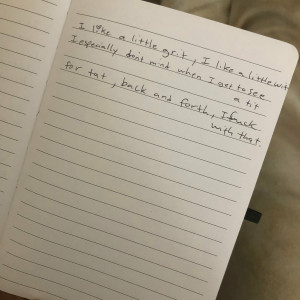 I like a little grit, I like a little wit
I especially don't mind when I get to see
a tit
for tat, back and forth, I fuck
with that.